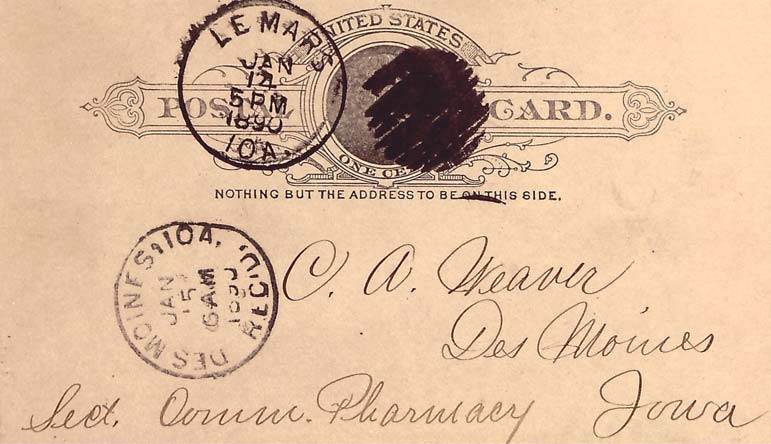 UNITED STATES
POSTAL CARD.
ONE CENT
NOTHING BUT THE ADDRESS TO BE ON THIS SIDE.
LE MARS
JAN
14
5 PM
1890
IOA.
DES MOINES, IOA. REC'D.
JAN
15
6 AM
1890
C. A. Weaver
Des Moines
Sect. Comm. Pharmacy Iowa